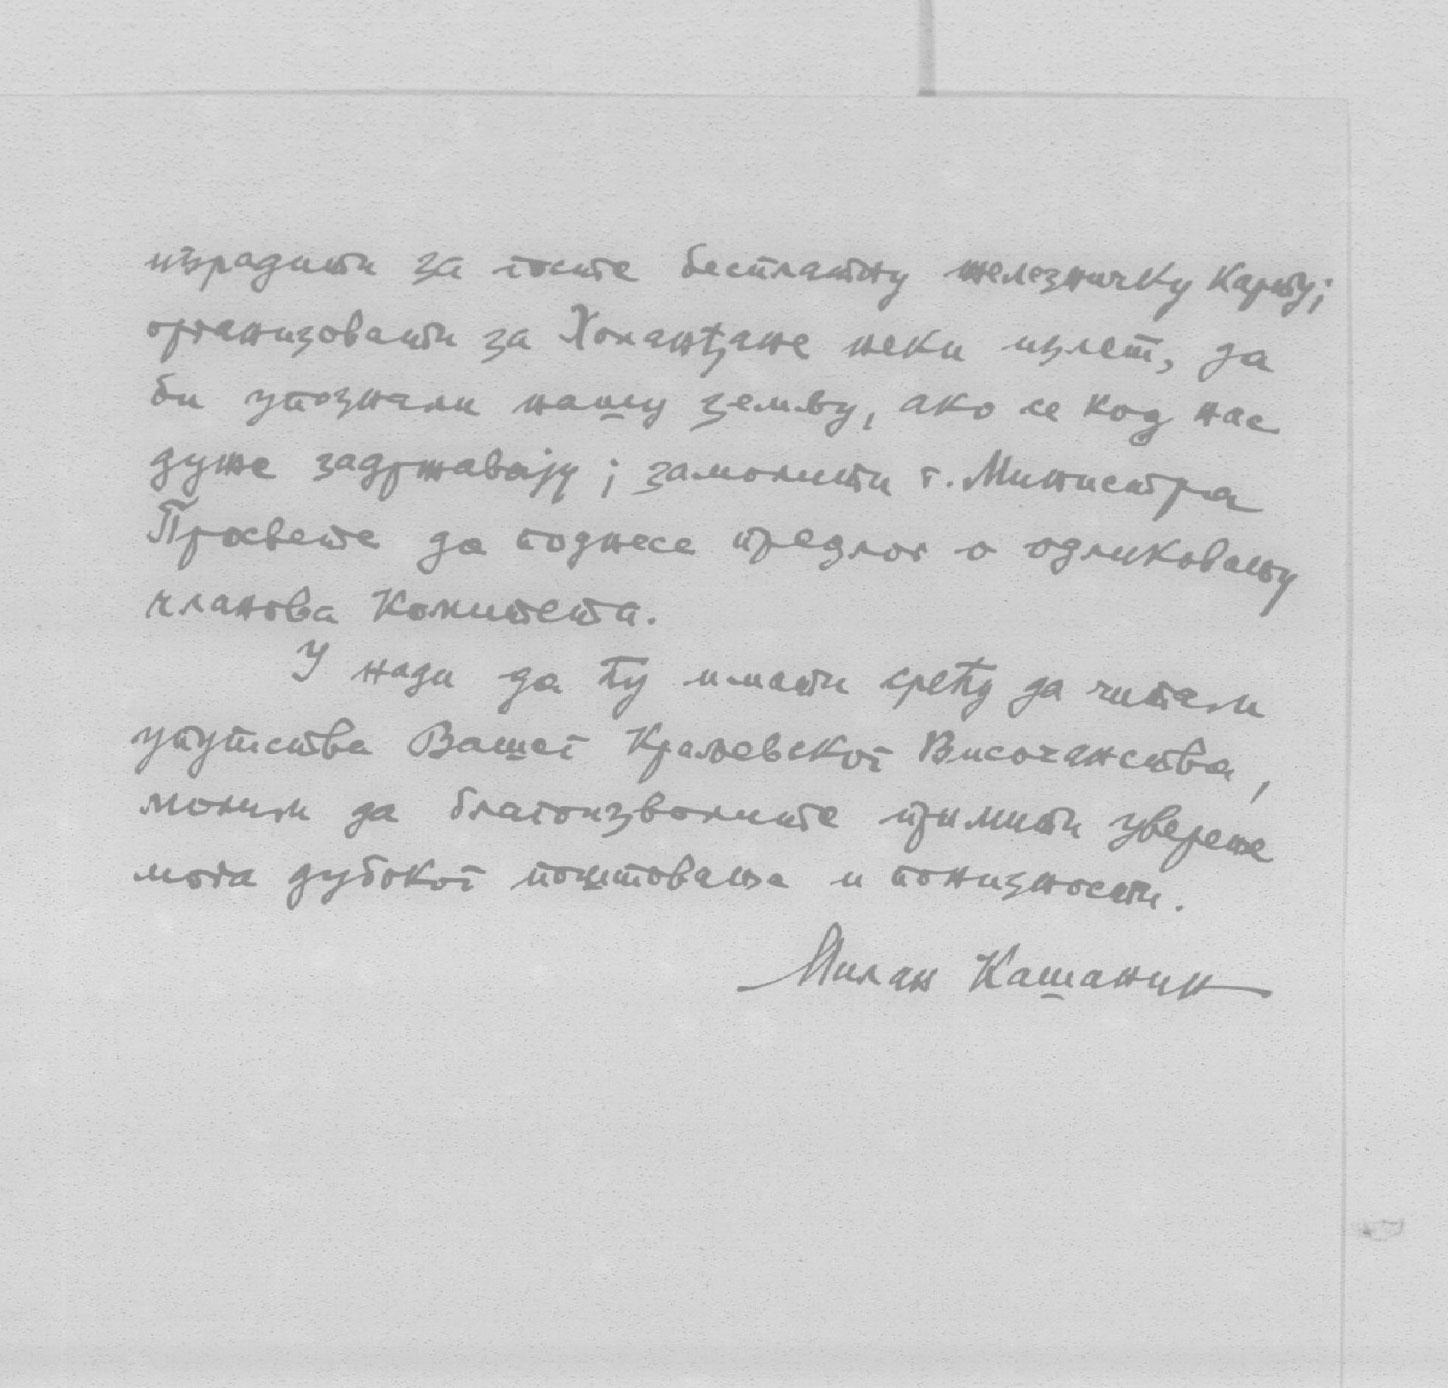 израдити за госте бесплатну железничку карту;
организовати за Холанђане неки излет, да
би упознали нашу земљу, ако се код нас
дуже задржавају; замолити г. Министра
Просвете да поднесе предлог о одликовању
чланова Комитета.
У нади да ћу имати срећу да читам
упутства Вашег Краљевског Височанства,
молим да благоизволите примити уверење
мога дубоког поштовања и понизности.
Милан Кашанин